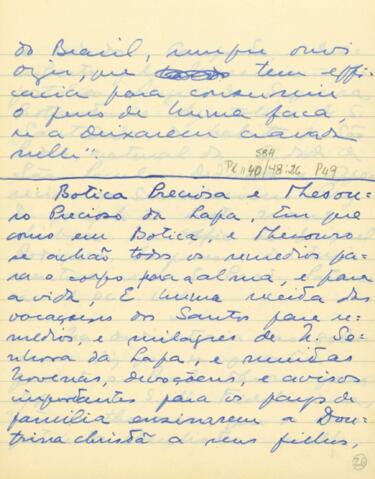 do Brasil, sempre ouvi
dizer, que tem effi
cacia para consumir
o ferro de huma faca,
se a deixarem cravada
nella".
SBH
Pi 40/48:26 P49
Botica Preciosa e Thesou-
ro Precioso da Lapa, Em que
como em Botica, e Thesouro
se achão todos os remedios pa-
ra o corpo para a alma, e para
a vida. E huma receita das
vocaçoens dos Santos para re-
medios e milagres de N. Se-
nhora da Lapa, e muitas
Novenas, devoçoens, e avisos
importantes para os pays de
familia ensinarem a Dou-
trina christã a seus filhos,